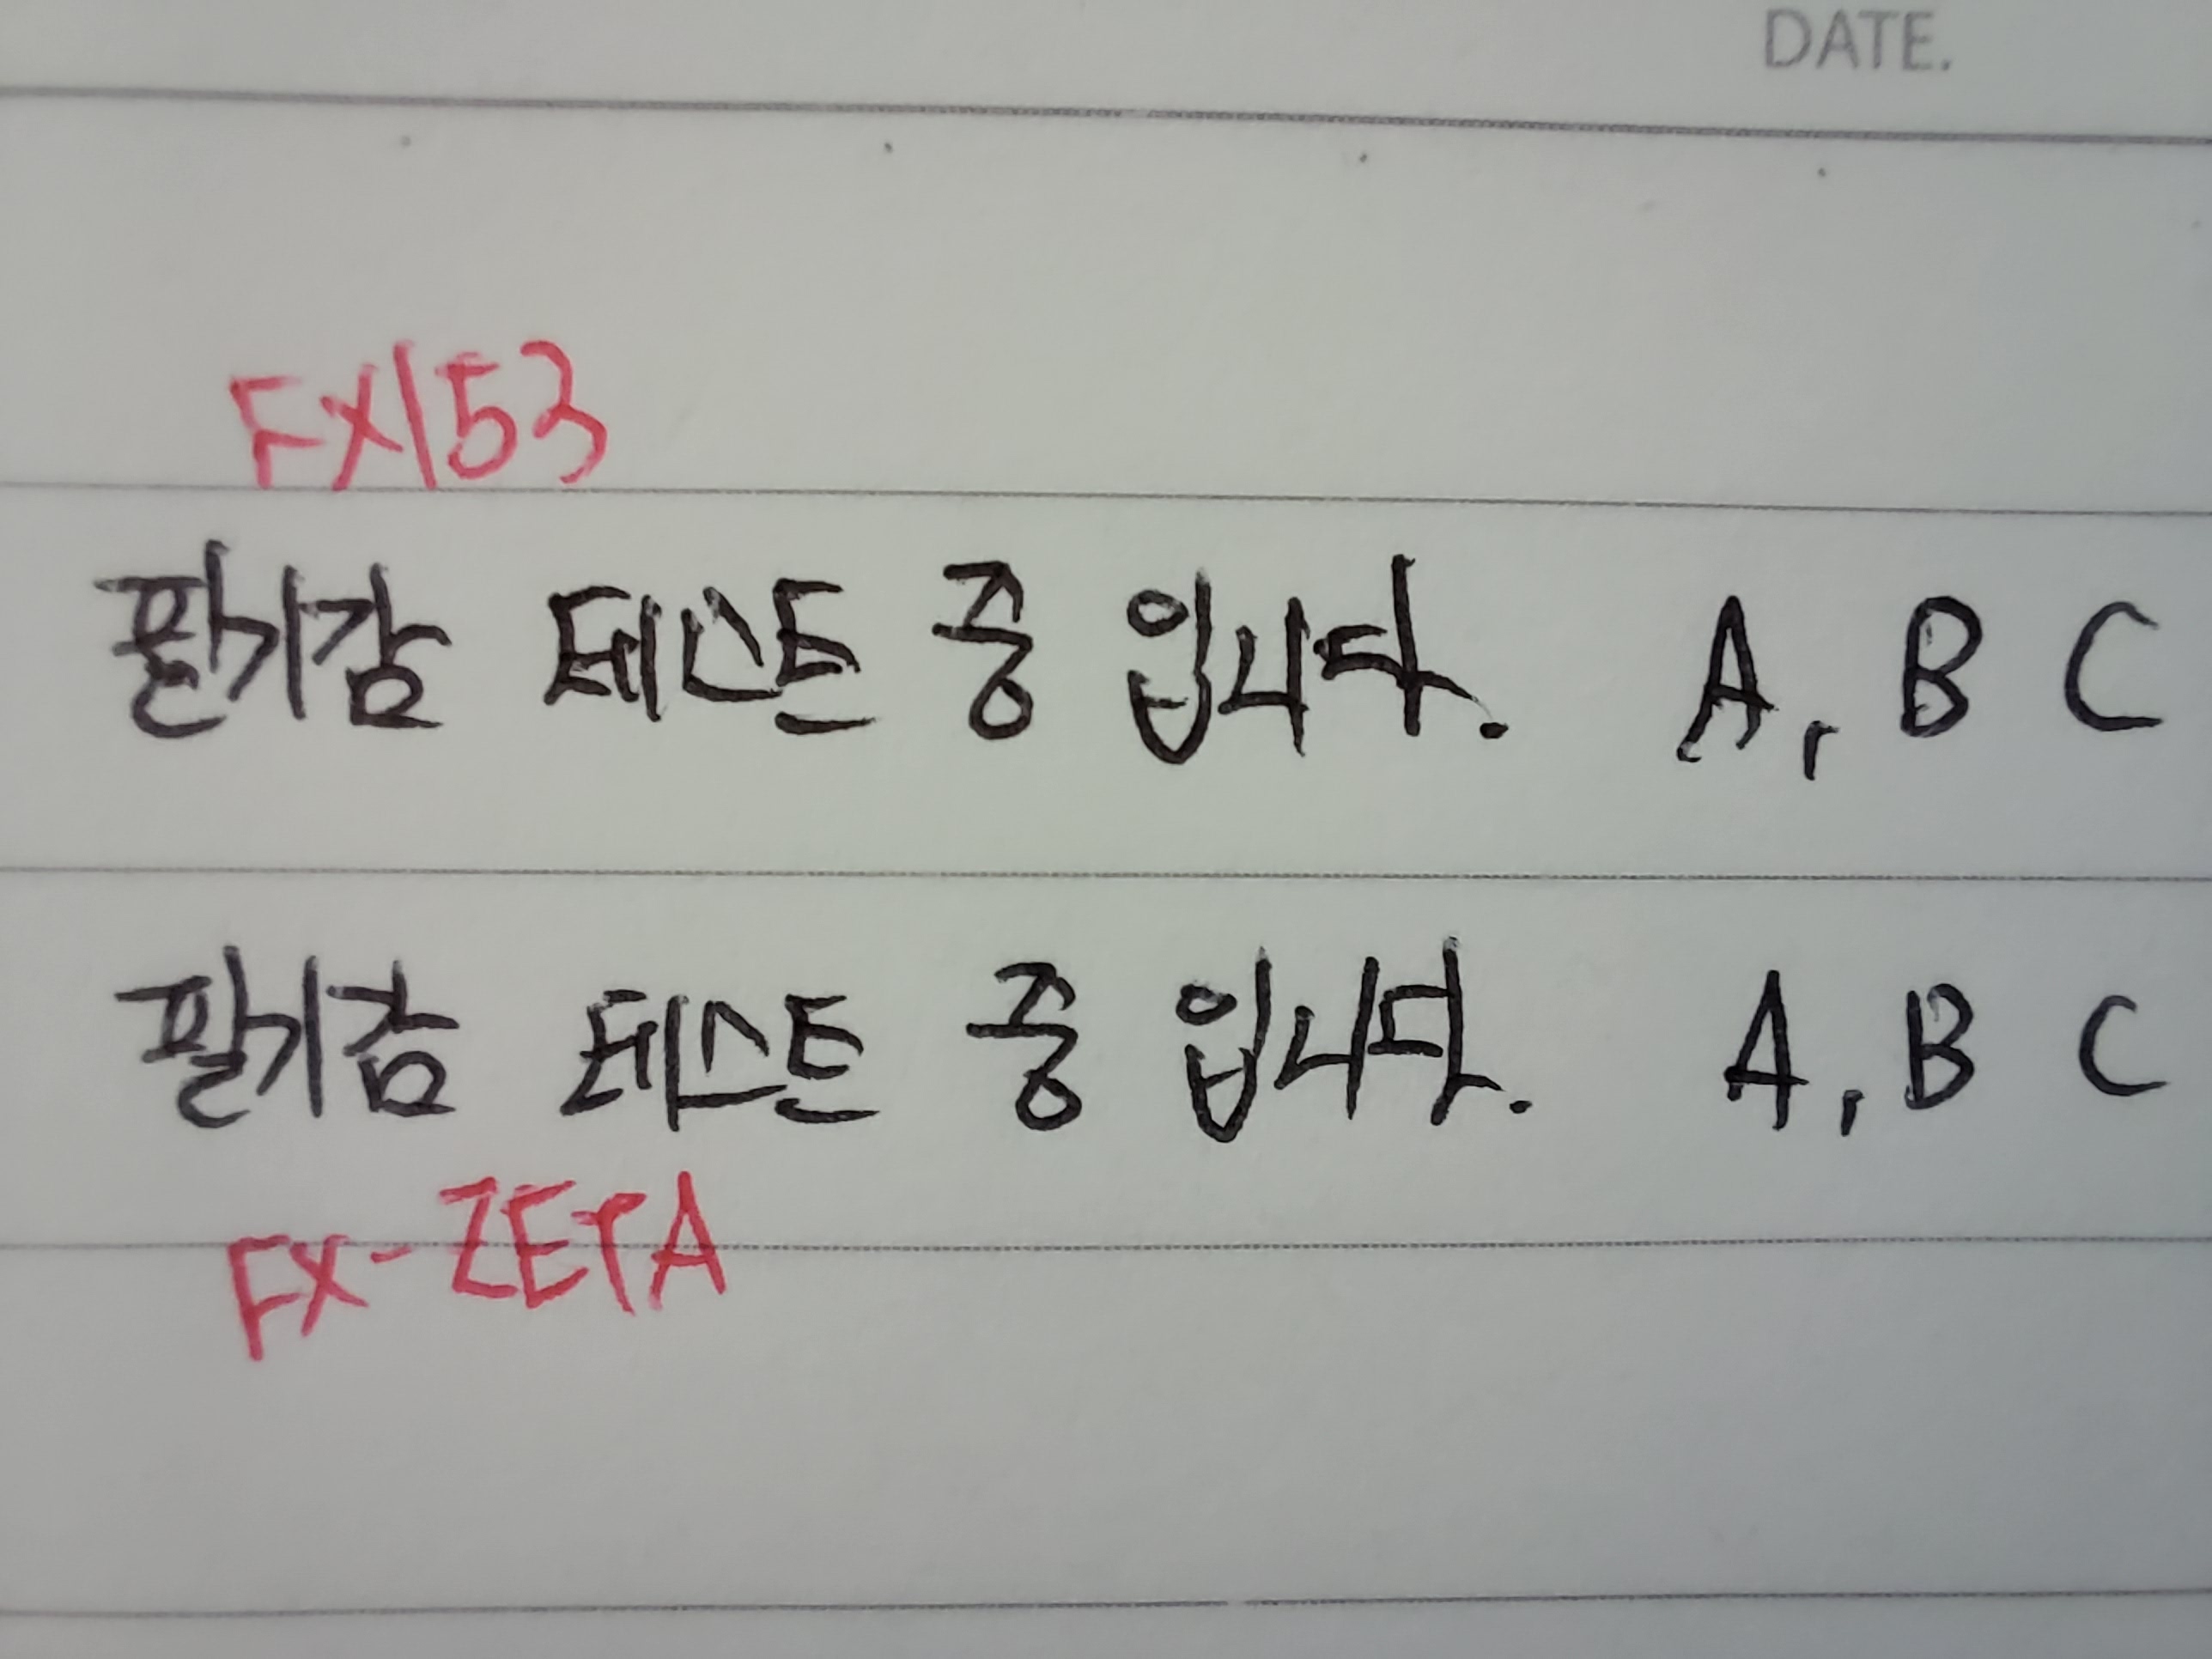 DATE.
FX153
필기감 테스트 중 입니다. A, B C
필기감 테스트 중 입니다. A, B C
FX-ZETA